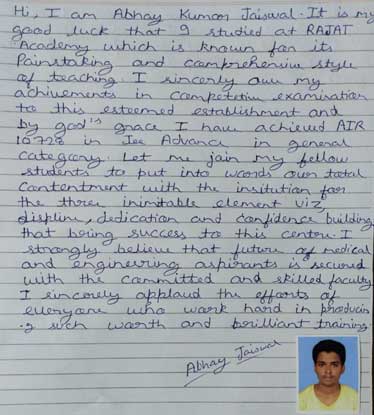 Hi, I am Abhay Kumar Jaiswal. It is my
good luck that I studied at RAJAT
Academy which is known for its
Painstaking and comprehensive style
of teaching. I sincerly owe my
achivements in competetive examination
to this esteemed establishment and
by god's grace I have achieved AIR
10728 in Jee Advance in general
category. Let me join my fellow
students to put into words our total
Contentment with the insitution for
the three inimitable element viz
displine, dedication and confidence building
that bring success to this centre. I
strongly believe that future of medical
and engineering aspirants is secured
with the committed and skilled faculty
I sincerely applaud the efforts of
everyone who work hard in producin
g such warth and brilliant training.
Abhay Jaiswal